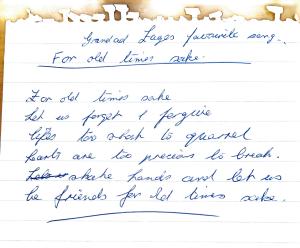 Grandad Lages favourite song.
For old times sake.
For old times sake
Let us forget & forgive
lifes too short to quarrel
hearts are too precious to break.
shake hands and let us
be friends for old times sake.